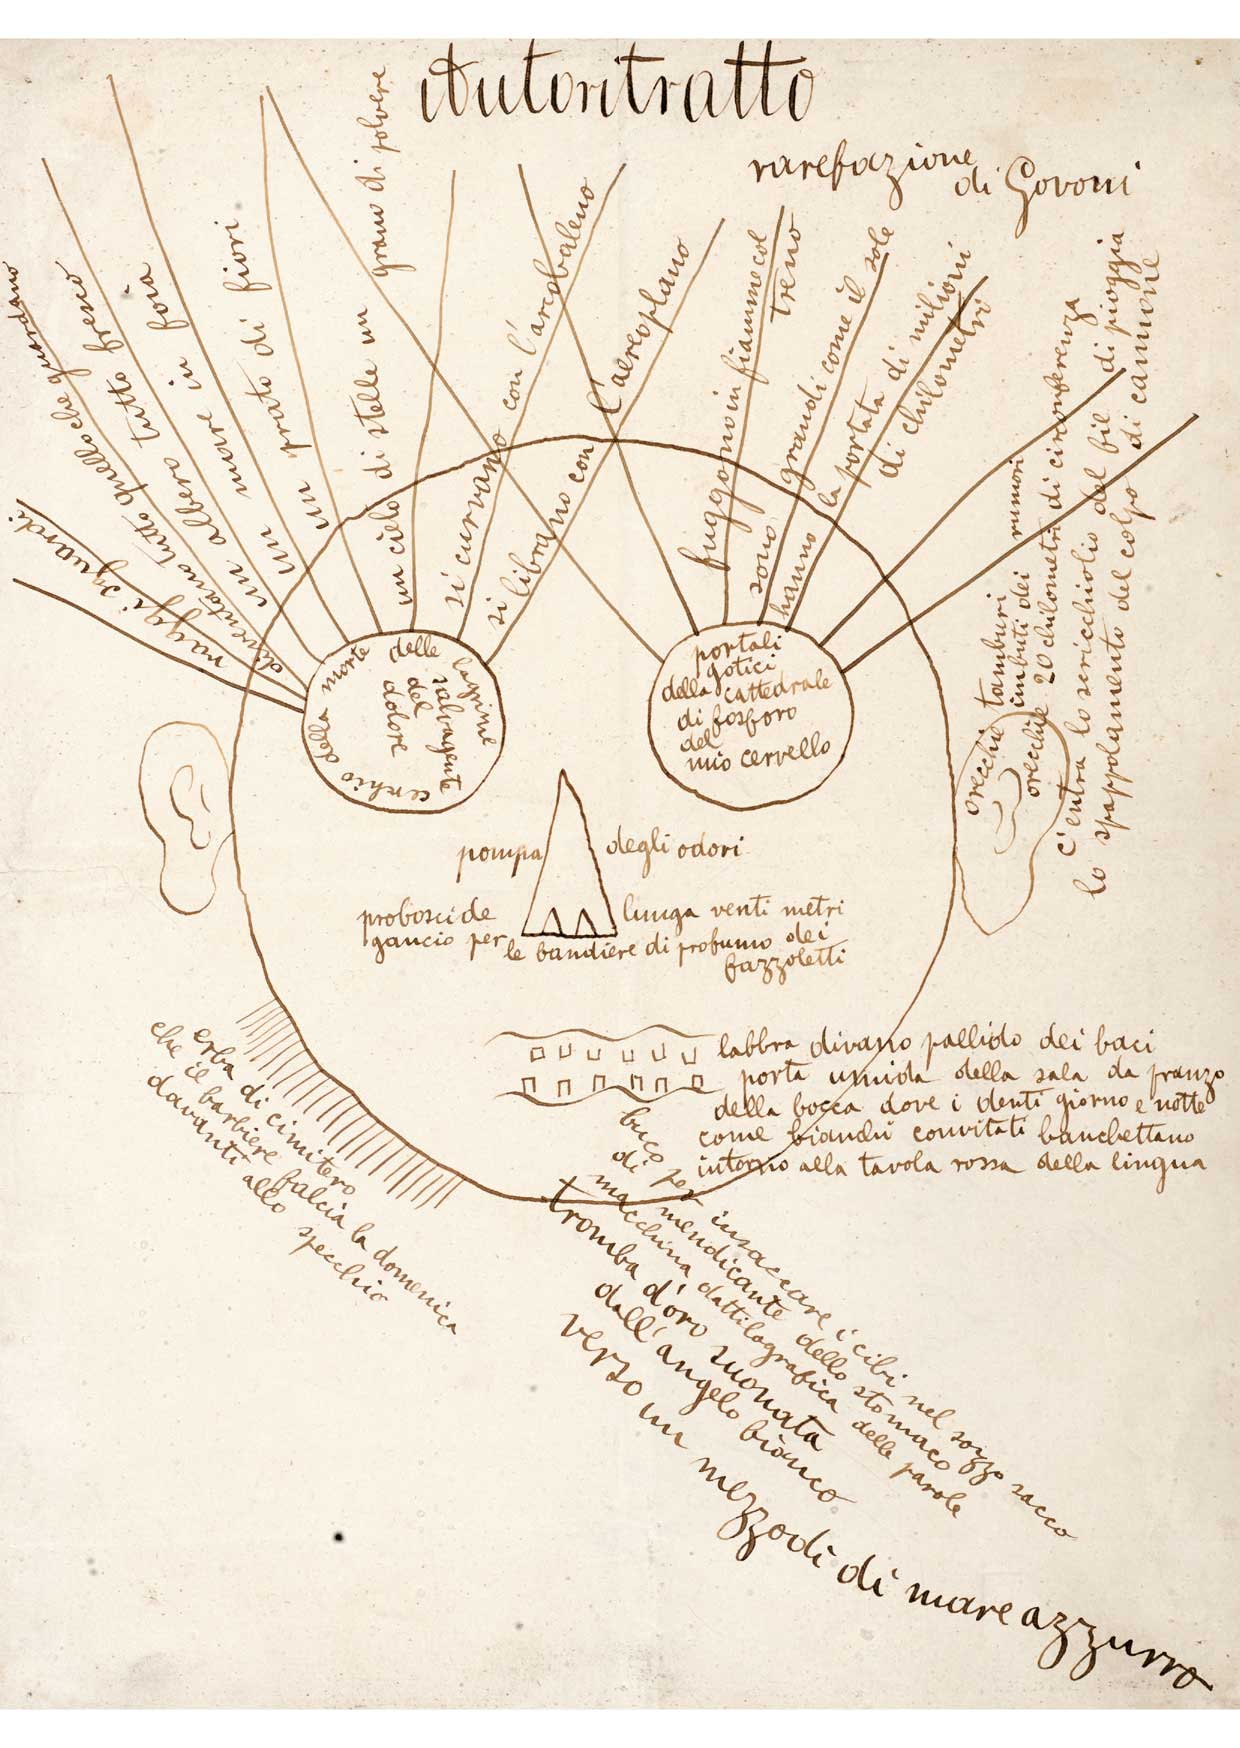 Autoritratto
rarefazione
di Govoni
raggi sguardi
diventano tutto quello che guardano
un albero tutto fresco
un mare in foia
un prato di fiori
un cielo di stelle un grano di polvere
si curvano con l'arcobaleno
si librano con l'aereoplano
fuggono in fiamme col
treno
sono grandi come il sole
hanno la portata di milioni
di chilometri
orecchie tamburi
imbuti dei rumori
orecchie 20 chilometri di circonferenza
c'entra lo scricchiolio del fil di pioggia
lo spappolamento del colpo di cannone
cerchio della morte delle lagrime
salvagente
del
dolore
portali
gotici
della cattedrale
di fosforo
del
mio cervello
pompa degli odori
proboscide lunga venti metri
gancio per le bandiere di profumo dei
fazzoletti
labbra divano pallido dei baci
porta umida della sala da pranzo
della bocca dove i denti giorno e notte
come bianchi convitati banchettano
intorno alla tavola rossa della lingua
erba di cimitero
che il barbiere falcia la domenica
davanti allo specchio
buco per insaccare i cibi nel sozzo sacco
di mendicante dello stomaco
macchina dattilografica delle parole
tromba d'oro suonata
dall'angelo bianco
verso un mezzodì di mare azzurro